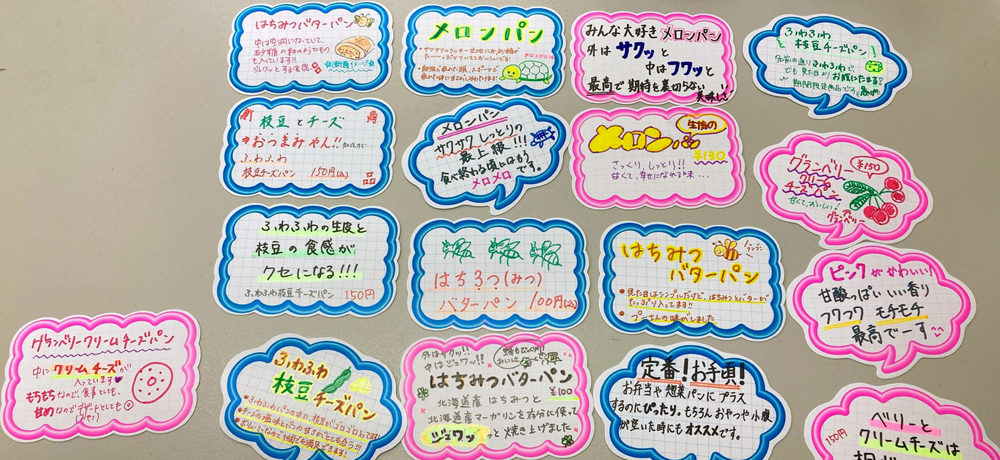 はちみつバターパン
中は空洞になっていて、
砂糖の粒のようなもの
も入っています!!
ジュワッとする食感
メロンパン
みんな大好きメロンパン
外はサクッと
中はフワッと
最高で期待を裏切らない
美味しさ
ふわふわ
枝豆チーズパン
枝豆とチーズ
おつまみやん!!
ふわふわ
枝豆チーズパン 150円(込)
メロンパン
サクサクしっとりの
最上級!!!
食べ終わる頃にはもう
メロメロ です。
生協の
メロンパン
¥130
さっくり、しっとり!!
甘くて、幸せになれる味...
¥150
クリーム
チーズパン
甘くて、おいしい
ふわふわの生地と
枝豆の食感が
クセになる!!!
ふわふわ枝豆チーズパン 150円
はちみつ(みつ)
バターパン 100円(込)
はちみつ
バターパン
見た目はシンプルだけど、はちみつとバターが
たっぷり入ってます!!
プーさんの味がしました
ピンクがかわいい!
甘酸っぱいいい香り
フワフワ モチモチ
最高でーす
クリームチーズパン
中にクリームチーズが
入っています
もちもちなので、食事としても、
甘めなのでデザートとしても
ふわふわ
枝豆
チーズパン
外はサクッ!!
中はジュワッ!!
はちみつバターパン
¥100
北海道産 はちみつと
北海道産マーガリンを充分に使って
ジュワッっと焼き上げました
定番!お手頃!
お弁当や惣菜パンにプラス
するのにぴったり。もちろんおやつや小腹
が空いた時にもオススメです。
ベリーと
150円 クリームチーズは